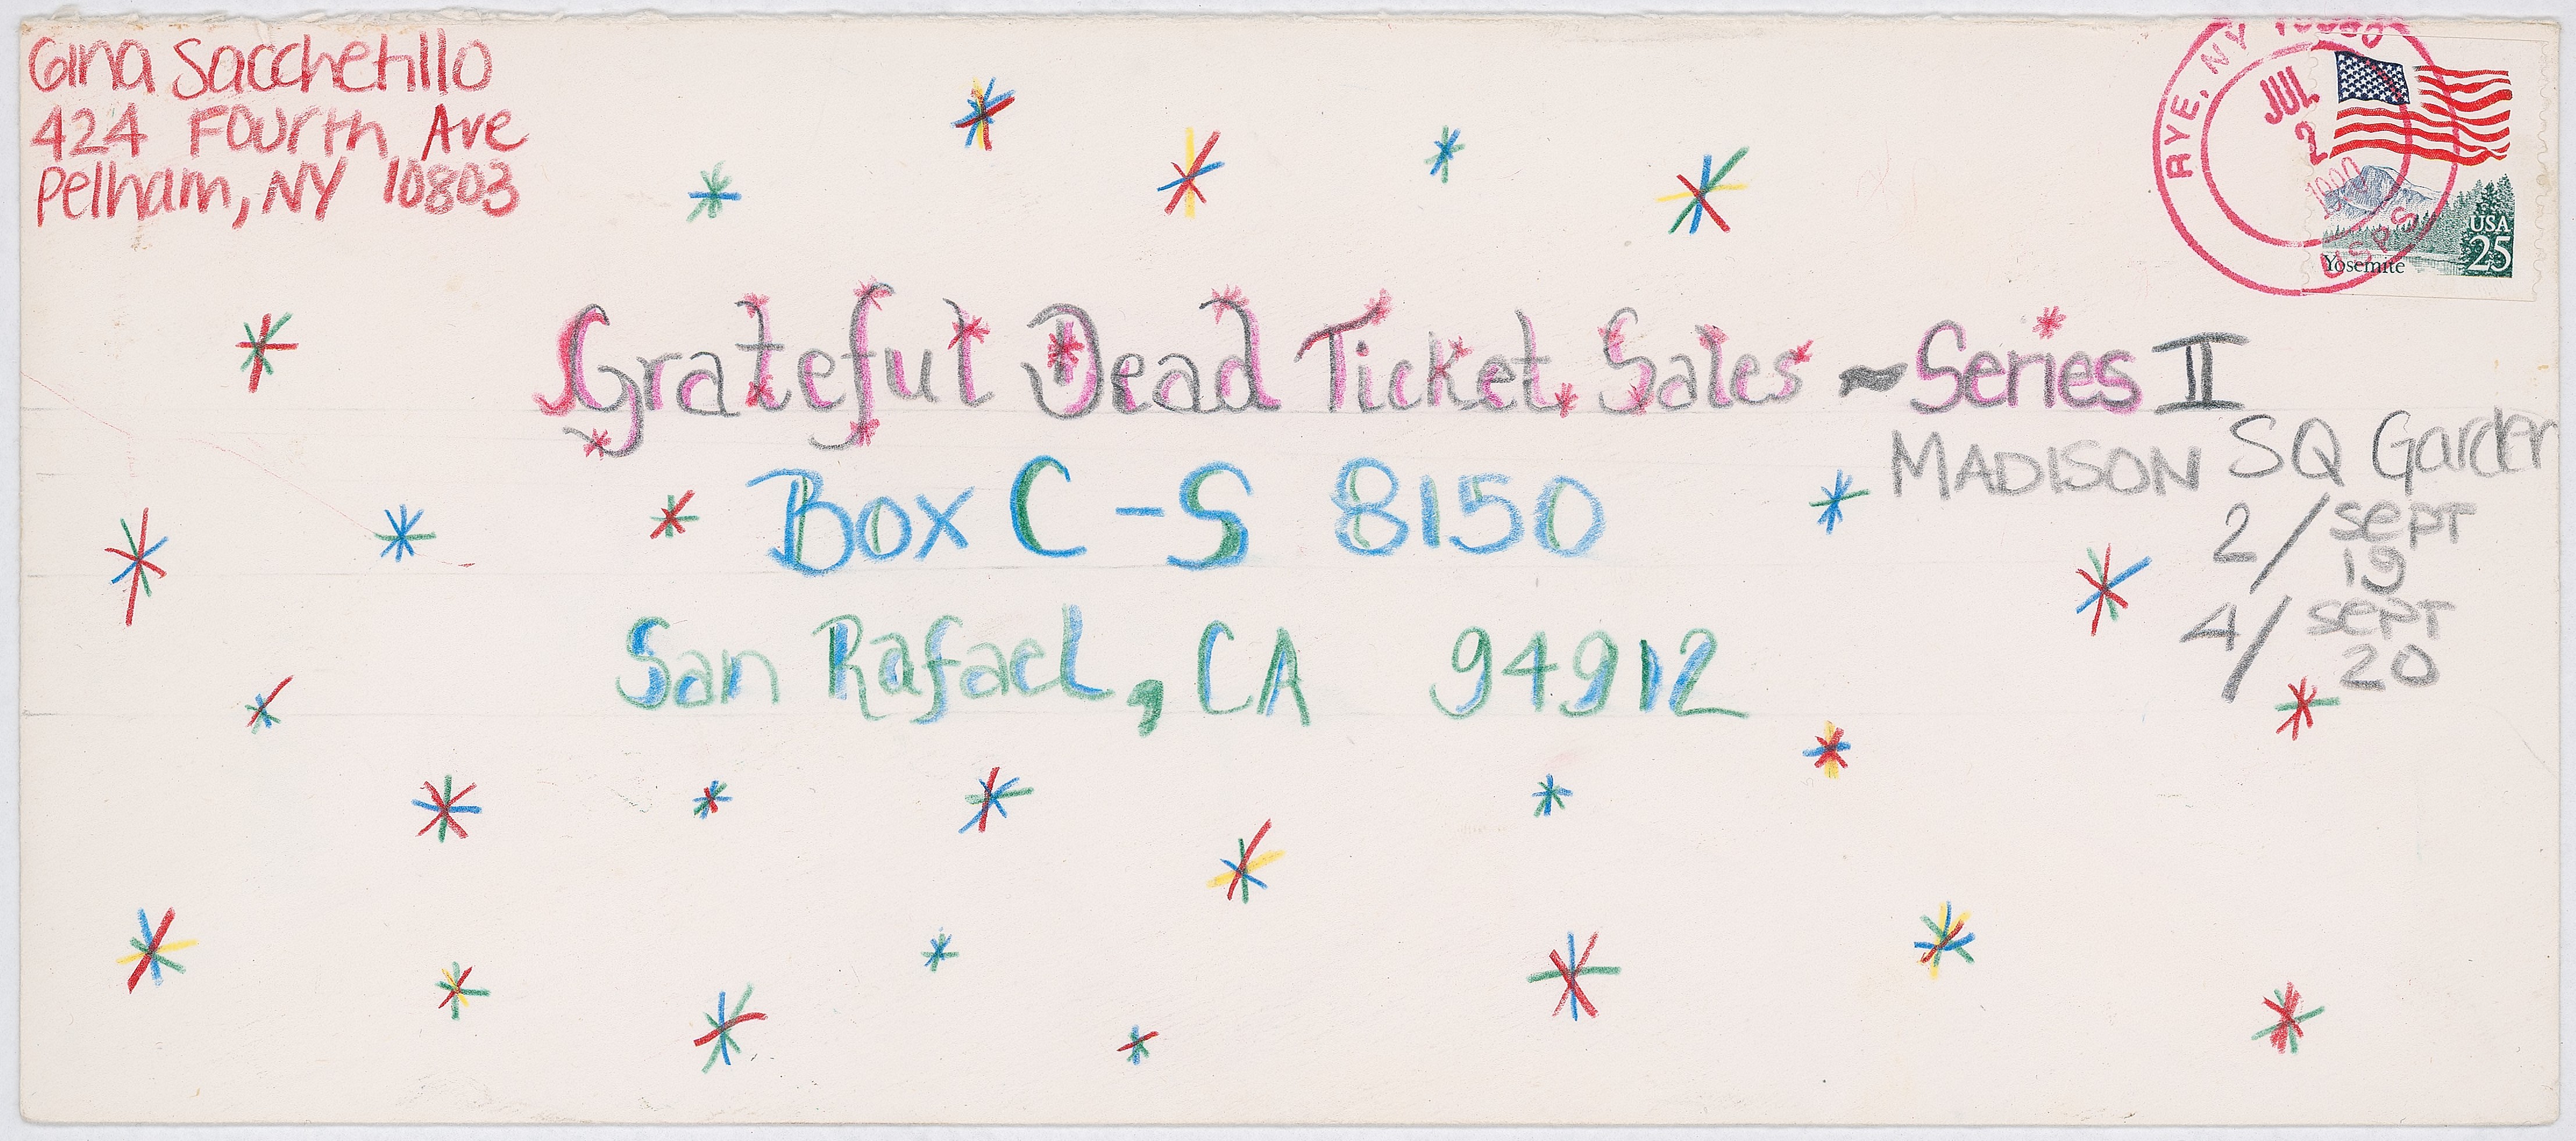 Gina Sacchetillo
424 Fourth Ave
Pelham, NY 10803
RYE, NY
JUL
2
1990
USPS
USA
25
Yosemite
Grateful Dead Ticket Sales ~ Series II
MADISON SQ Garden
Box C-S 8150
2/ Sept 19
San Rafael, CA 94912
4/ Sept 20